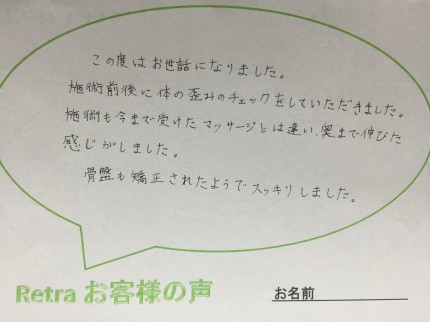 この度はお世話になりました。
施術前後に体の歪みのチェックをしていただきました。
施術も今まで受けたマッサージとは違い、奥まで伸びた
感じがしました。
骨盤も矯正されたようでスッキリしました。
Retra お客様の声
お名前